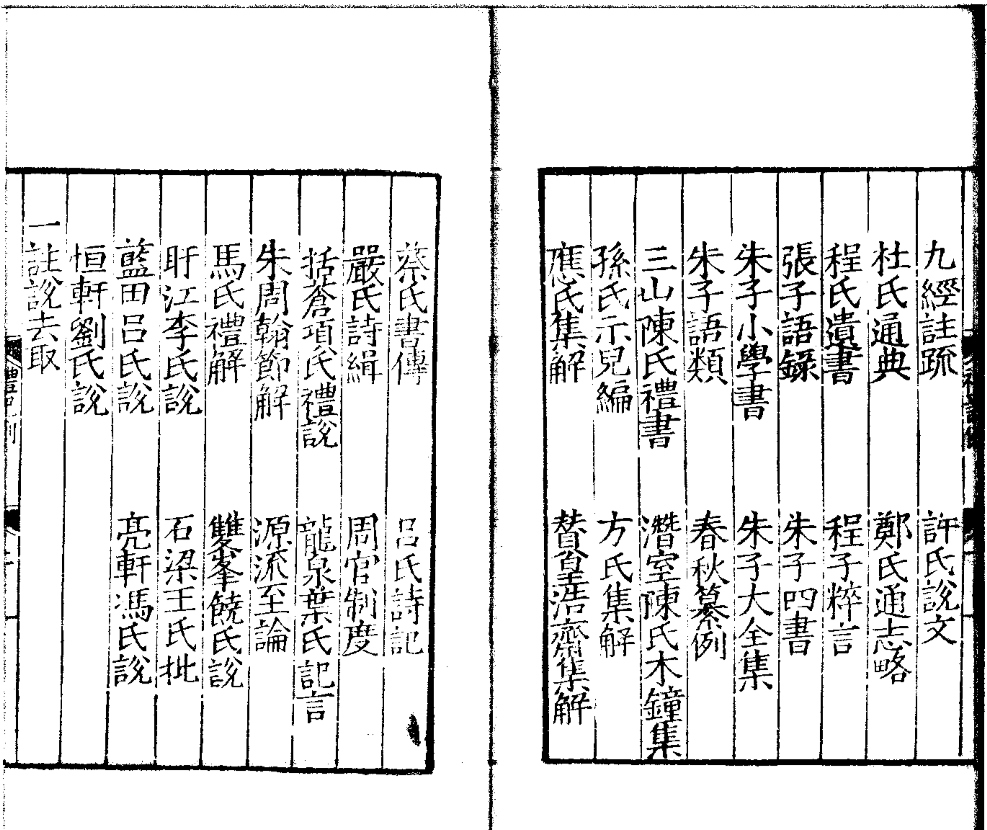 九經註疏　許氏說文
杜氏通典　鄭氏通志略
程氏遺書　程子粹言
張子語録　朱子四書
朱子小學書　朱子大全集
朱子語類　春秋纂例
三山陳氏禮書　潛室陳氏木鐘集
孫氏示兒編　方氏集解
應氏集解　賛皇浩齋集解
蔡氏書傳　呂氏詩記
嚴氏詩緝　周官制度
括蒼項氏禮說　龍泉葉氏記言
朱周翰節解　源流至論
馬氏禮解　雙峯饒氏說
盱江李氏說　石梁王氏批
藍田呂氏說　亮軒馮氏說
恒軒劉氏說
一註說去取